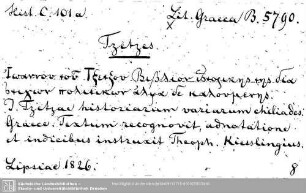 Hist. C. 101a
Lit. Graeca B. 5790.
Tzetzes.
Ιωαννου του Τζετζου Βιβλιον ἱστορικης της δια
στιχων πολιτικων αλφα δε καλουμενης.
J. Tzetzae historiarum variarum chiliades.
Graece. Textum recognovit, adnotatione
et indicibus instruxit Theoph. Kiesslingius
Lipsiae 1826. 8